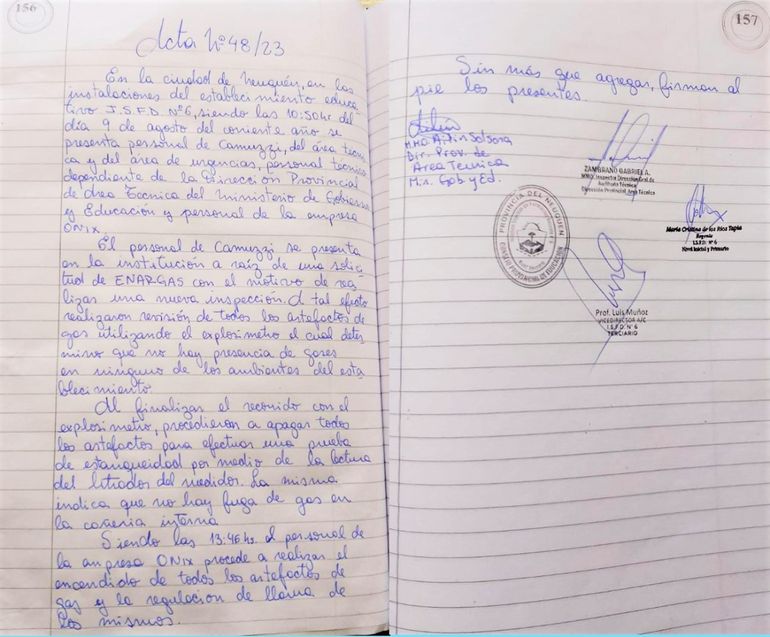 156
Acta Nº 48/23
En la ciudad de Neuquén, en las
instalaciones del establecimiento educa
tivo I.S.F.D. Nº6, siendo las 10:50hr del
día 9 de agosto del corriente año se
presenta personal de Camuzzi, del área técni
ca y del área de urgencias, personal técnico
dependiente de la Dirección Provincial
de Área Tecnica del Ministerio de Gobierno
y Educación y personal de la empresa
ONIX.
El personal de Camuzzi se presenta
en la institución a raíz de una solici
tud de ENARGAS con el motivo de rea
lizar una nueva inspección. A tal efecto
realizaron revisión de todos los artefactos de
gas utilizando el explosimetro el cual deter
mino que no hay presencia de gases
en ninguno de los ambientes del esta
blecimiento.
Al finalizar el recorrido con el
explosimetro, procedieron a apagar todos
los artefactos para efectuar una prueba
de estanqueidad por medio de la lectura
del litrados del medidor. La misma
indica que no hay fuga de gas en
la cañeria interna
Siendo las 13:46hs. el personal de
la empresa ONIX procede a realizar el
encendido de todos los artefactos de
gas y la regulacion de llama de
los mismos.
157
Sin más que agregar, firman al
pie los presentes.
M.M.O.
Dir. Prov. de
Área Tecnica
M. Gob y Ed.
ZAMBRANO GABRIEL A.
MMO Inspector Dirección Gral. de
Auditoria Técnica
Dirección Provincial Area Técnica
PROVINCIA DEL NEUQUEN
CONSEJO PROVINCIAL DE EDUCACION
María Cristina de los Ríos Tapia
Regente
I.S.F.D. Nº 6
Nivel Inicial y Primario
Prof. Luis Muñoz
VICEDIRECTOR A/C
I.S.F.D. Nº 6
TERCIARIO